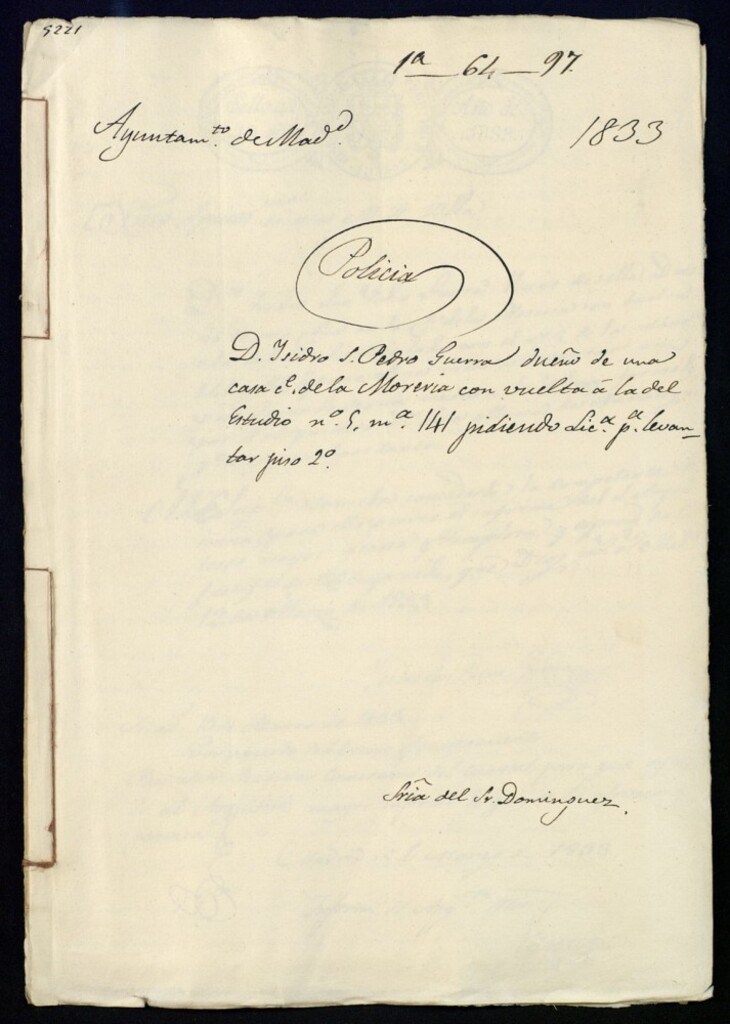 5221
1ª — 64 — 97
Ayuntam.to de Mad.d
1833
Policia
D. Isidro S. Pedro Guerra dueño de una
casa c.e de la Moreria con vuelta á la del
Estudio nº. 5, m.ª 141 pidiendo Lic.ª p.ª levan-
tar piso 2º.
Sria del Sr. Dominguez.